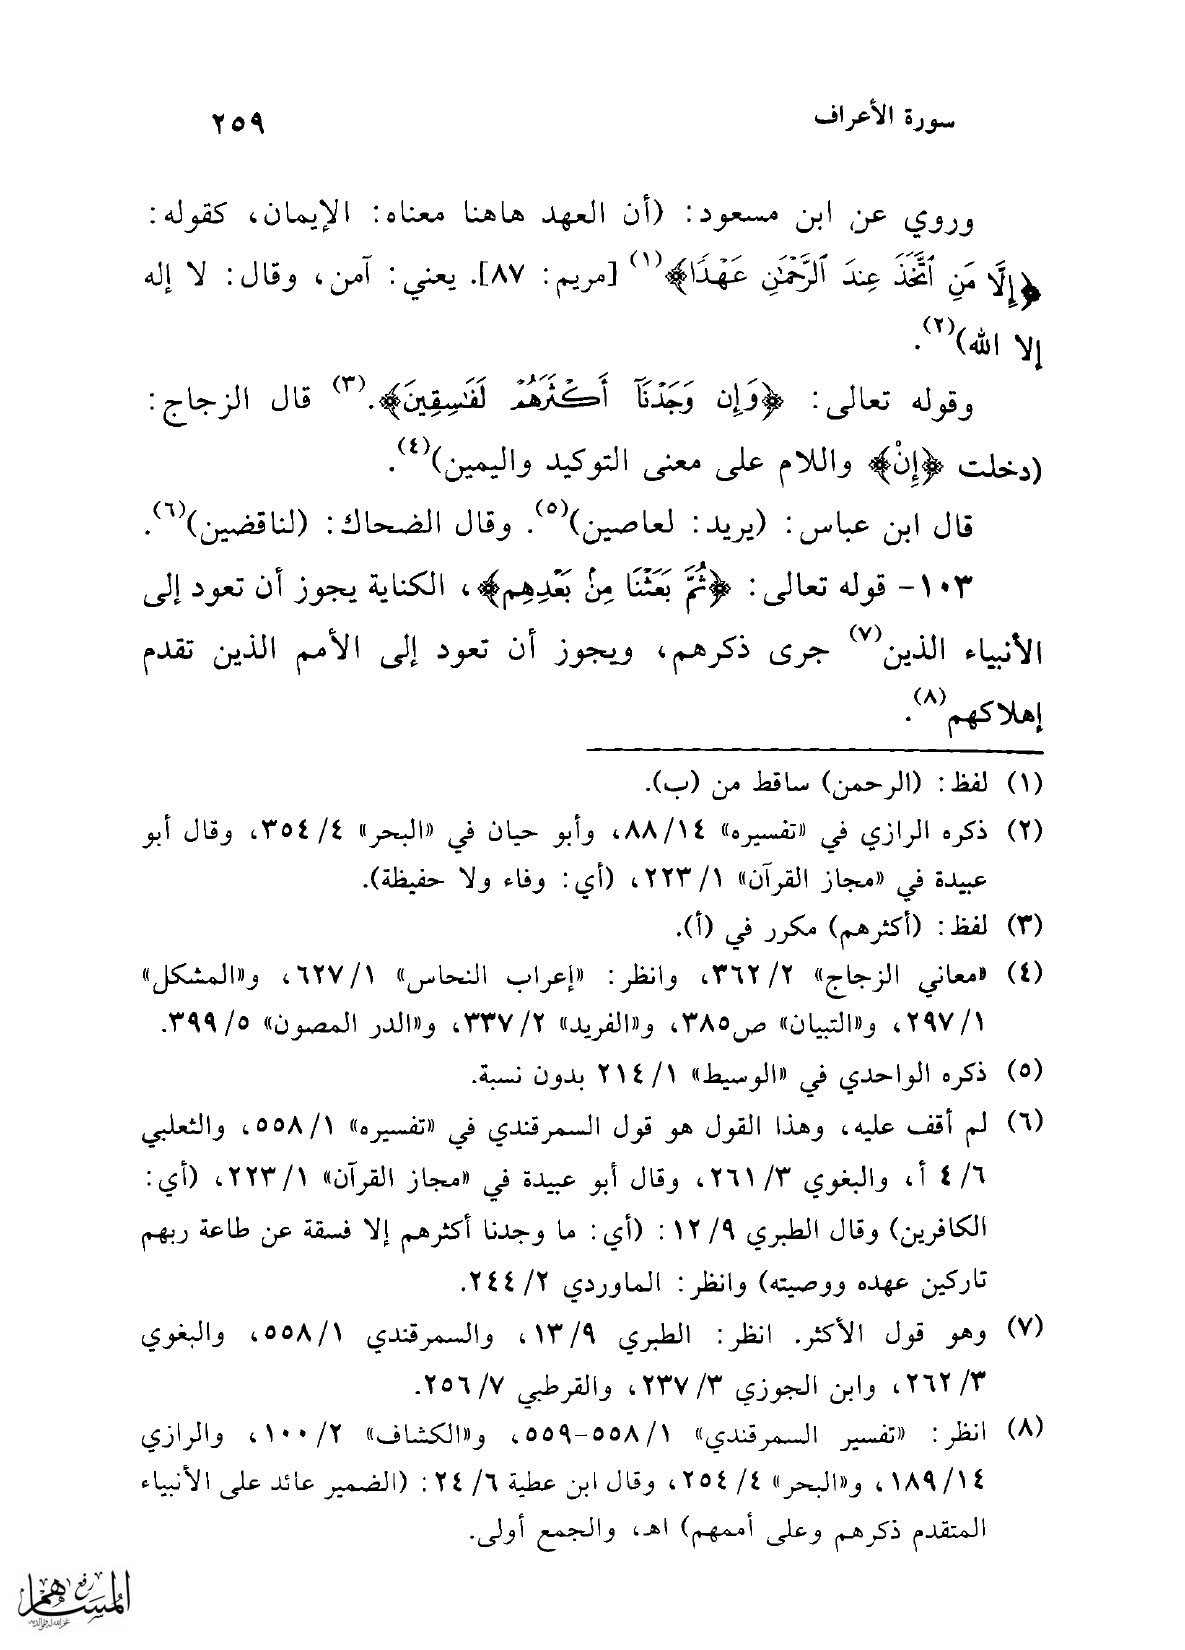 سورة الأعراف ٢٥٩
وروي عن ابن مسعود: (أن العهد هاهنا معناه: الإيمان، كقوله:
﴿إِلَّا مَنِ ٱتَّخَذَ عِندَ ٱلرَّحْمَٰنِ عَهْدًا﴾(١) [مريم: ٨٧]. يعني: آمن، وقال: لا إله
إلا الله)(٢).
وقوله تعالى: ﴿وَإِن وَجَدْنَآ أَكْثَرَهُمْ لَفَٰسِقِينَ﴾.(٣) قال الزجاج:
(دخلت ﴿إِنْ﴾ واللام على معنى التوكيد واليمين)(٤).
قال ابن عباس: (يريد: لعاصين)(٥). وقال الضحاك: (لناقضين)(٦).
١٠٣- قوله تعالى: ﴿ثُمَّ بَعَثْنَا مِنۢ بَعْدِهِم﴾، الكناية يجوز أن تعود إلى
الأنبياء الذين(٧) جرى ذكرهم، ويجوز أن تعود إلى الأمم الذين تقدم
إهلاكهم(٨).
(١) لفظ: (الرحمن) ساقط من (ب).
(٢) ذكره الرازي في «تفسيره» ١٤/ ٨٨، وأبو حيان في «البحر» ٤/ ٣٥٤، وقال أبو
عبيدة في «مجاز القرآن» ١/ ٢٢٣، (أي: وفاء ولا حفيظة).
(٣) لفظ: (أكثرهم) مكرر في (أ).
(٤) «معاني الزجاج» ٢/ ٣٦٢، وانظر: «إعراب النحاس» ١/ ٦٢٧، و«المشكل»
١/ ٢٩٧، و«التبيان» ص٣٨٥، و«الفريد» ٢/ ٣٣٧، و«الدر المصون» ٥/ ٣٩٩.
(٥) ذكره الواحدي في «الوسيط» ١/ ٢١٤ بدون نسبة.
(٦) لم أقف عليه، وهذا القول هو قول السمرقندي في «تفسيره» ١/ ٥٥٨، والثعلبي
٦/ ٤ أ، والبغوي ٣/ ٢٦١، وقال أبو عبيدة في «مجاز القرآن» ١/ ٢٢٣، (أي:
الكافرين) وقال الطبري ٩/ ١٢: (أي: ما وجدنا أكثرهم إلا فسقة عن طاعة ربهم
تاركين عهده ووصيته) وانظر: الماوردي ٢/ ٢٤٤.
(٧) وهو قول الأكثر. انظر: الطبري ٩/ ١٣، والسمرقندي ١/ ٥٥٨، والبغوي
٣/ ٢٦٢، وابن الجوزي ٣/ ٢٣٧، والقرطبي ٧/ ٢٥٦.
(٨) انظر: «تفسير السمرقندي» ١/ ٥٥٨-٥٥٩، و«الكشاف» ٢/ ١٠٠، والرازي
١٤/ ١٨٩، و«البحر» ٤/ ٢٥٤، وقال ابن عطية ٦/ ٢٤: (الضمير عائد على الأنبياء
المتقدم ذكرهم وعلى أممهم) اهـ، والجمع أولى.
رفع
المساهم